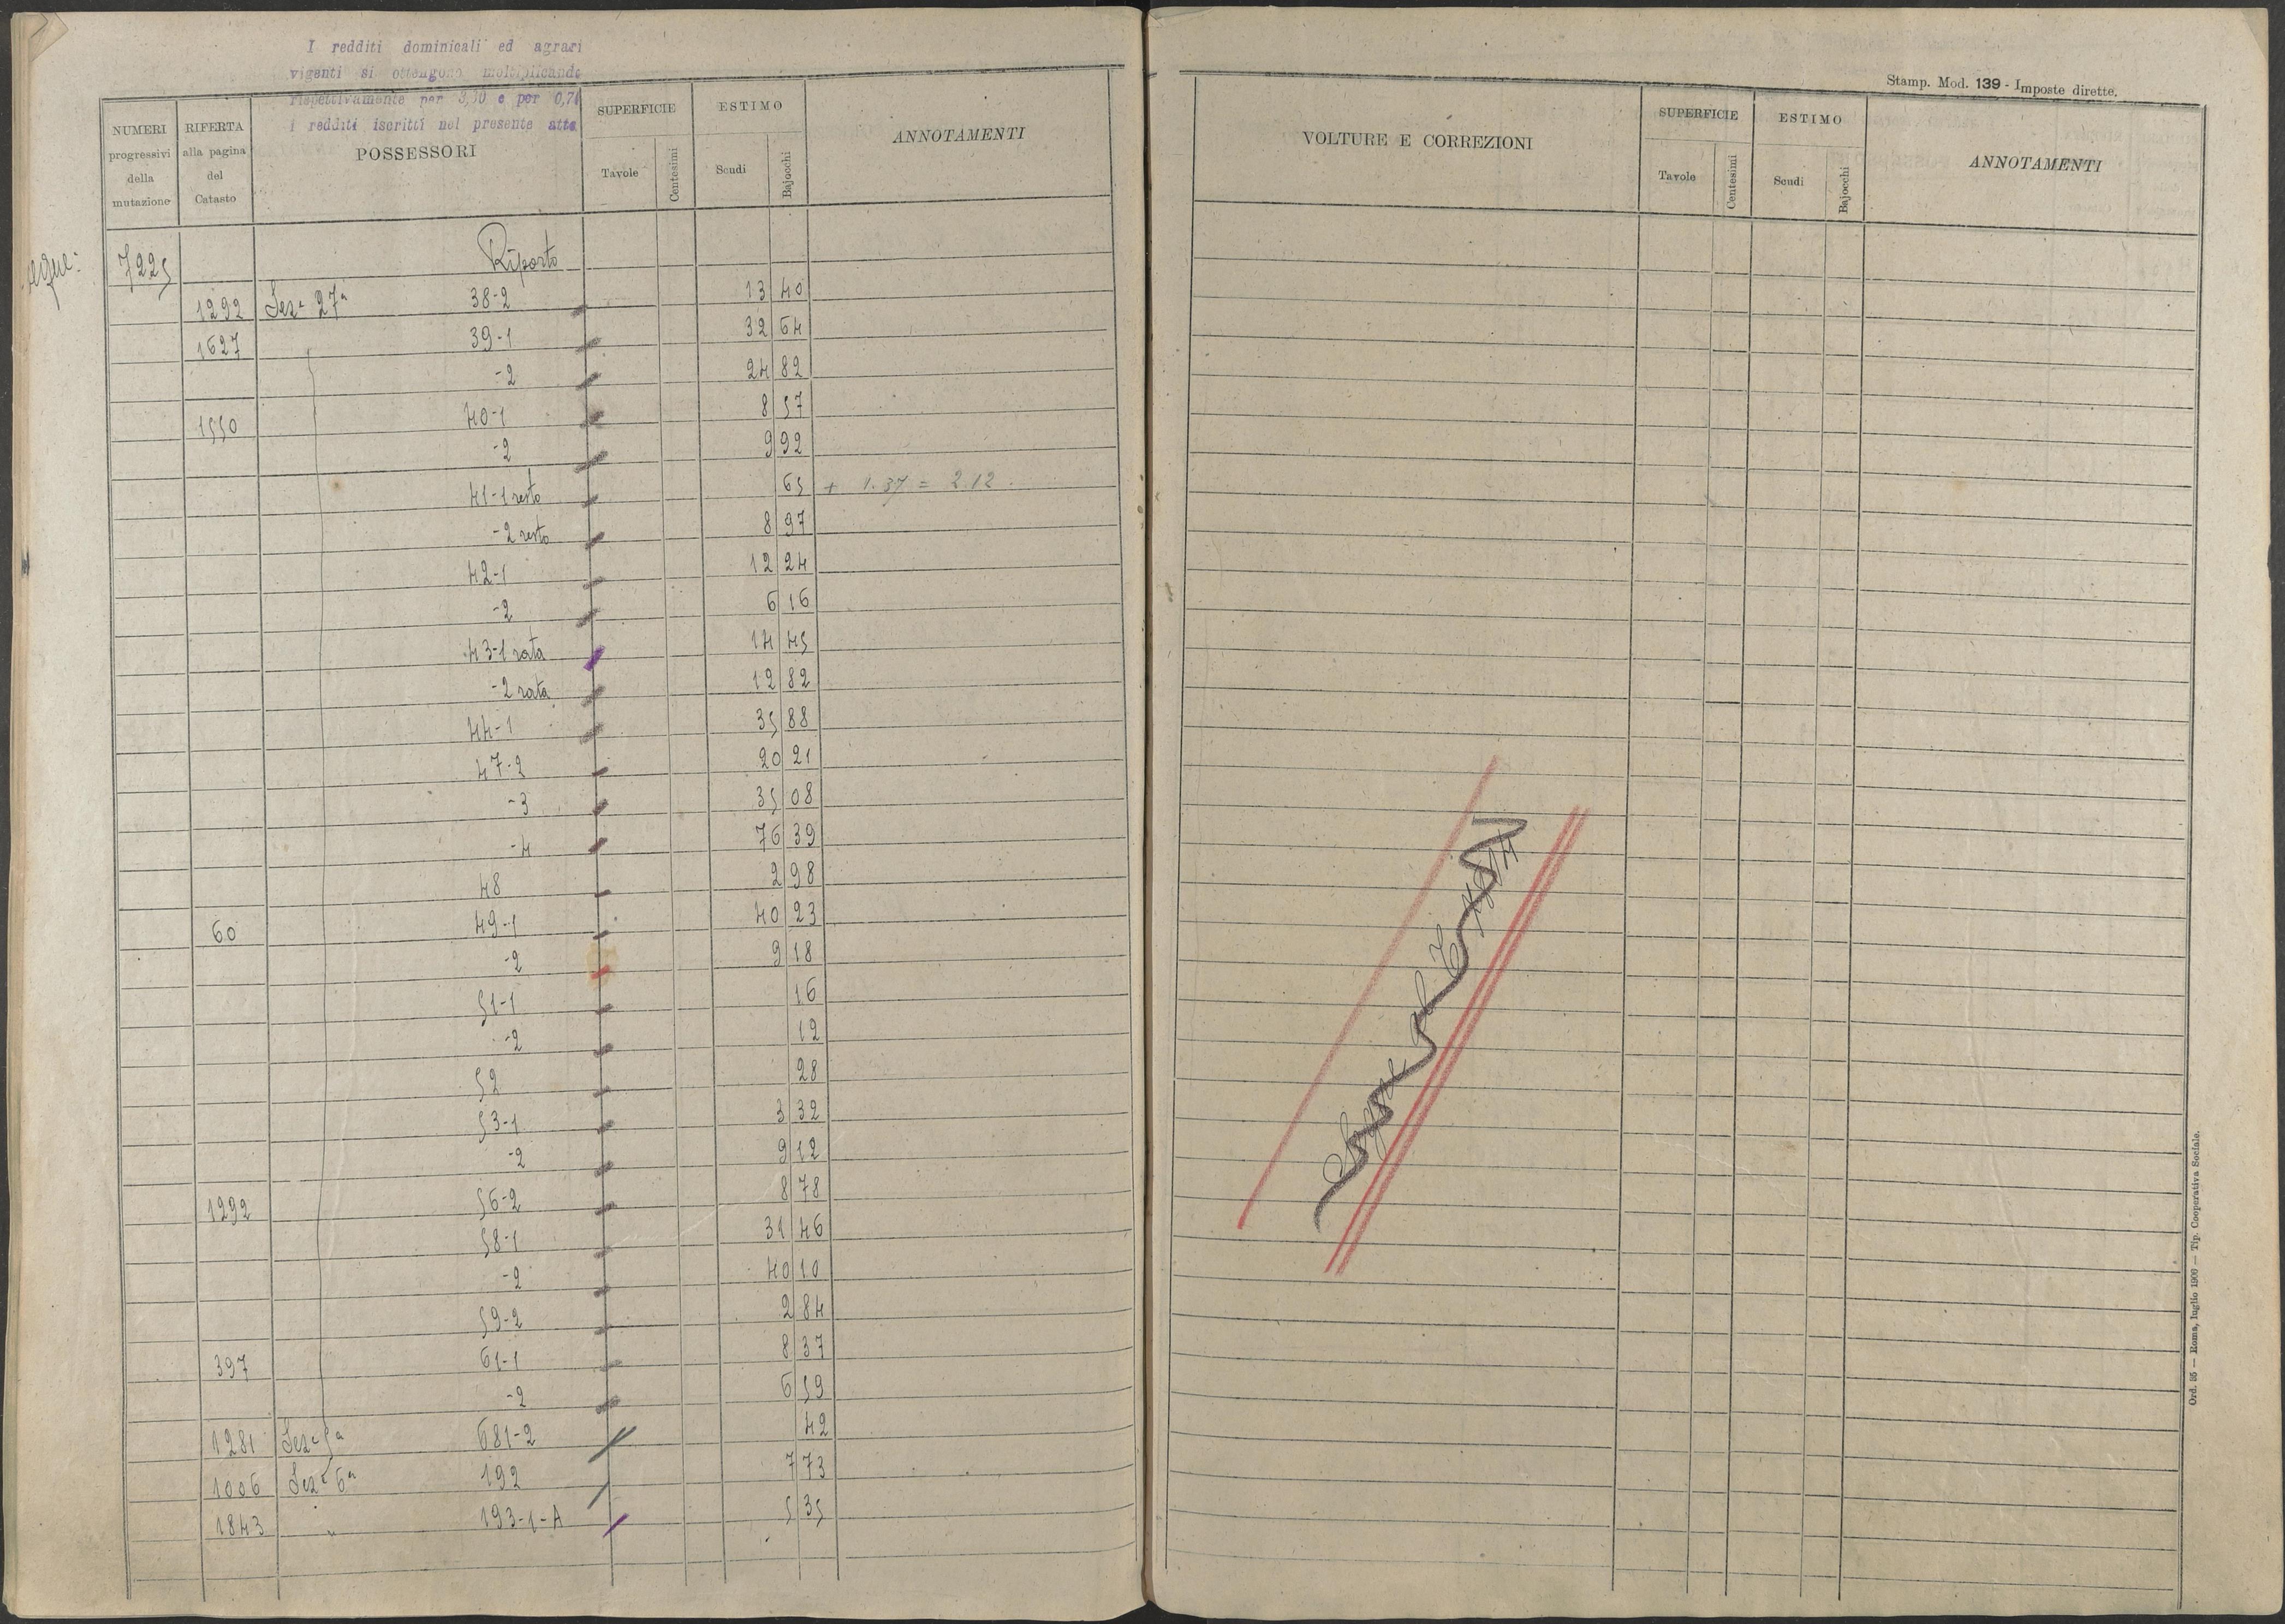 I redditi dominicali ed agrari
vigenti si ottengono moltiplicando
rispettivamente per 3,30 e per 0,70
i redditi iscritti nel presente atto
NUMERI progressivi della mutazione
RIFERTA alla pagina del Catasto
POSSESSORI
SUPERFICIE
Tavole Centesimi
ESTIMO
Scudi Bajocchi
ANNOTAMENTI
segue: 7225 Riporto
1292 Sez- 27a 38-2 13 40
1627 39-1 32 64
-2 24 82
1550 40-1 8 57
-2 9 92
41-1 resto 65 + 1.37 = 2.12
-2 resto 8 97
42-1 12 24
-2 6 16
43-1 rata 14 45
-2 rata 12 82
44-1 35 88
47-2 20 21
-3 35 08
-4 76 39
48 2 98
60 49-1 40 23
-2 9 18
51-1 16
-2 12
52 28
53-1 3 32
-2 9 12
1292 56-2 8 78
58-1 31 46
-2 40 10
59-2 2 84
397 61-1 8 37
-2 6 59
1281 Sez- 5a 681-2 42
1006 Sez- 6a 192 7 73
1843 " 193-1-A 5 35
Stamp. Mod. 139 - Imposte dirette.
VOLTURE E CORREZIONI
SUPERFICIE
Tavole Centesimi
ESTIMO
Scudi Bajocchi
ANNOTAMENTI
Segue al
Ord. 85 — Roma, luglio 1906 — Tip. Cooperativa Sociale.